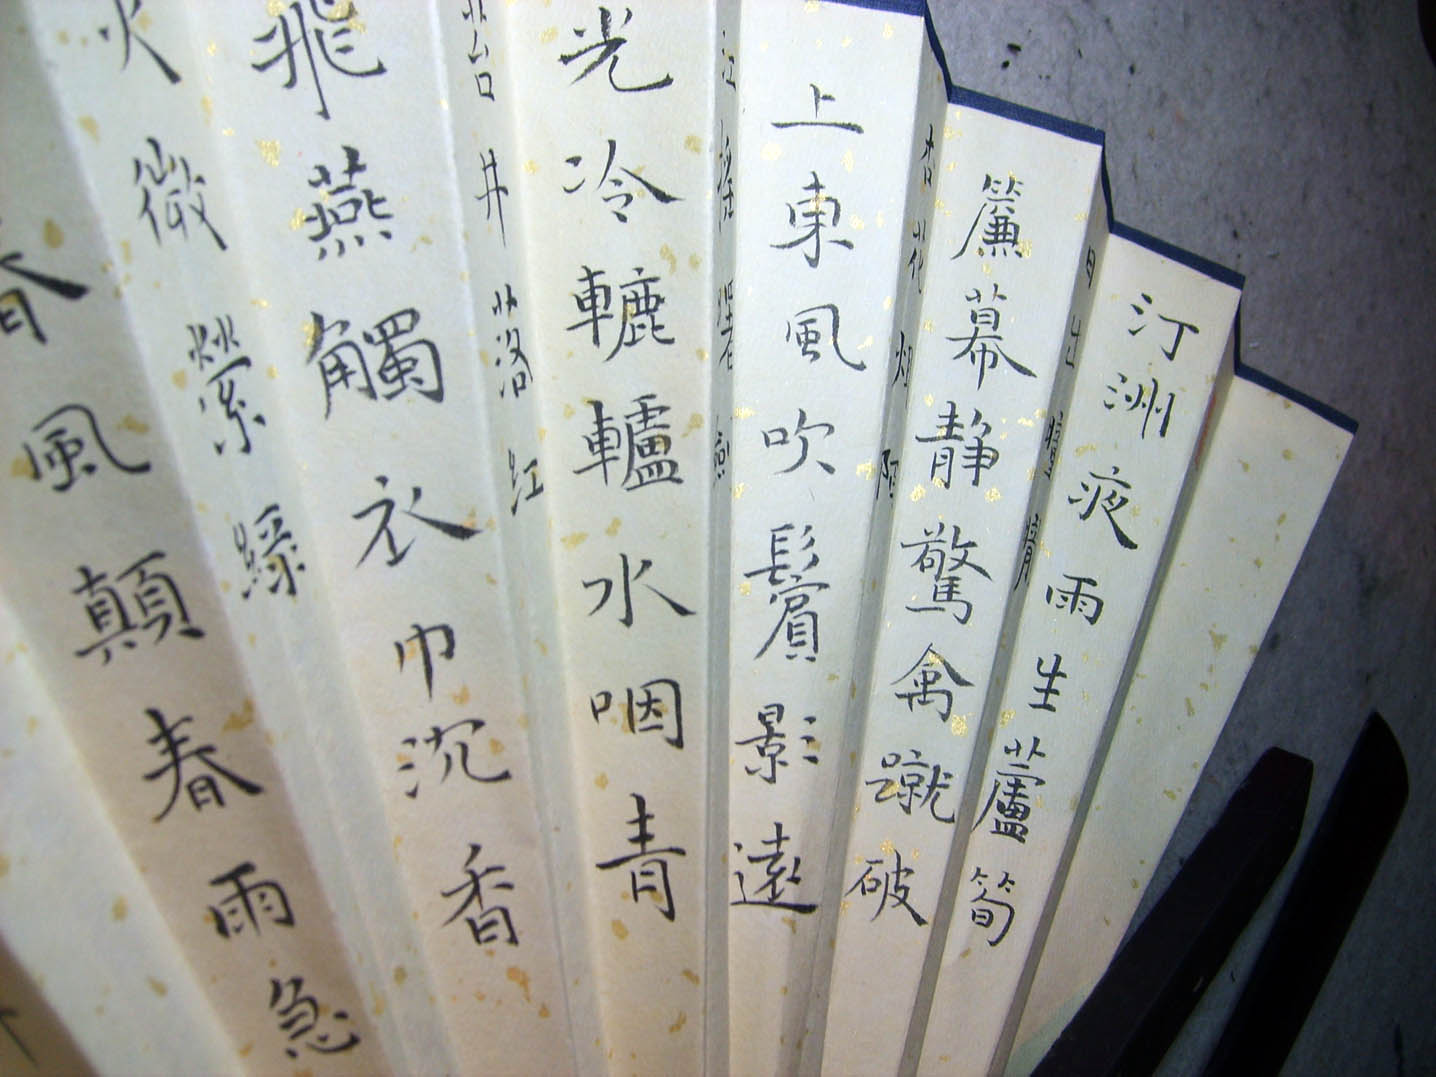 汀洲夜雨生蘆筍
日出曈曨
簾幕静驚禽蹴破
杏花烟陌
上東風吹鬢影遠
江搖曙劍
光冷轆轤水咽青
苔井落紅
飛燕觸衣巾沉香
火微縈綠
春風顛春雨急